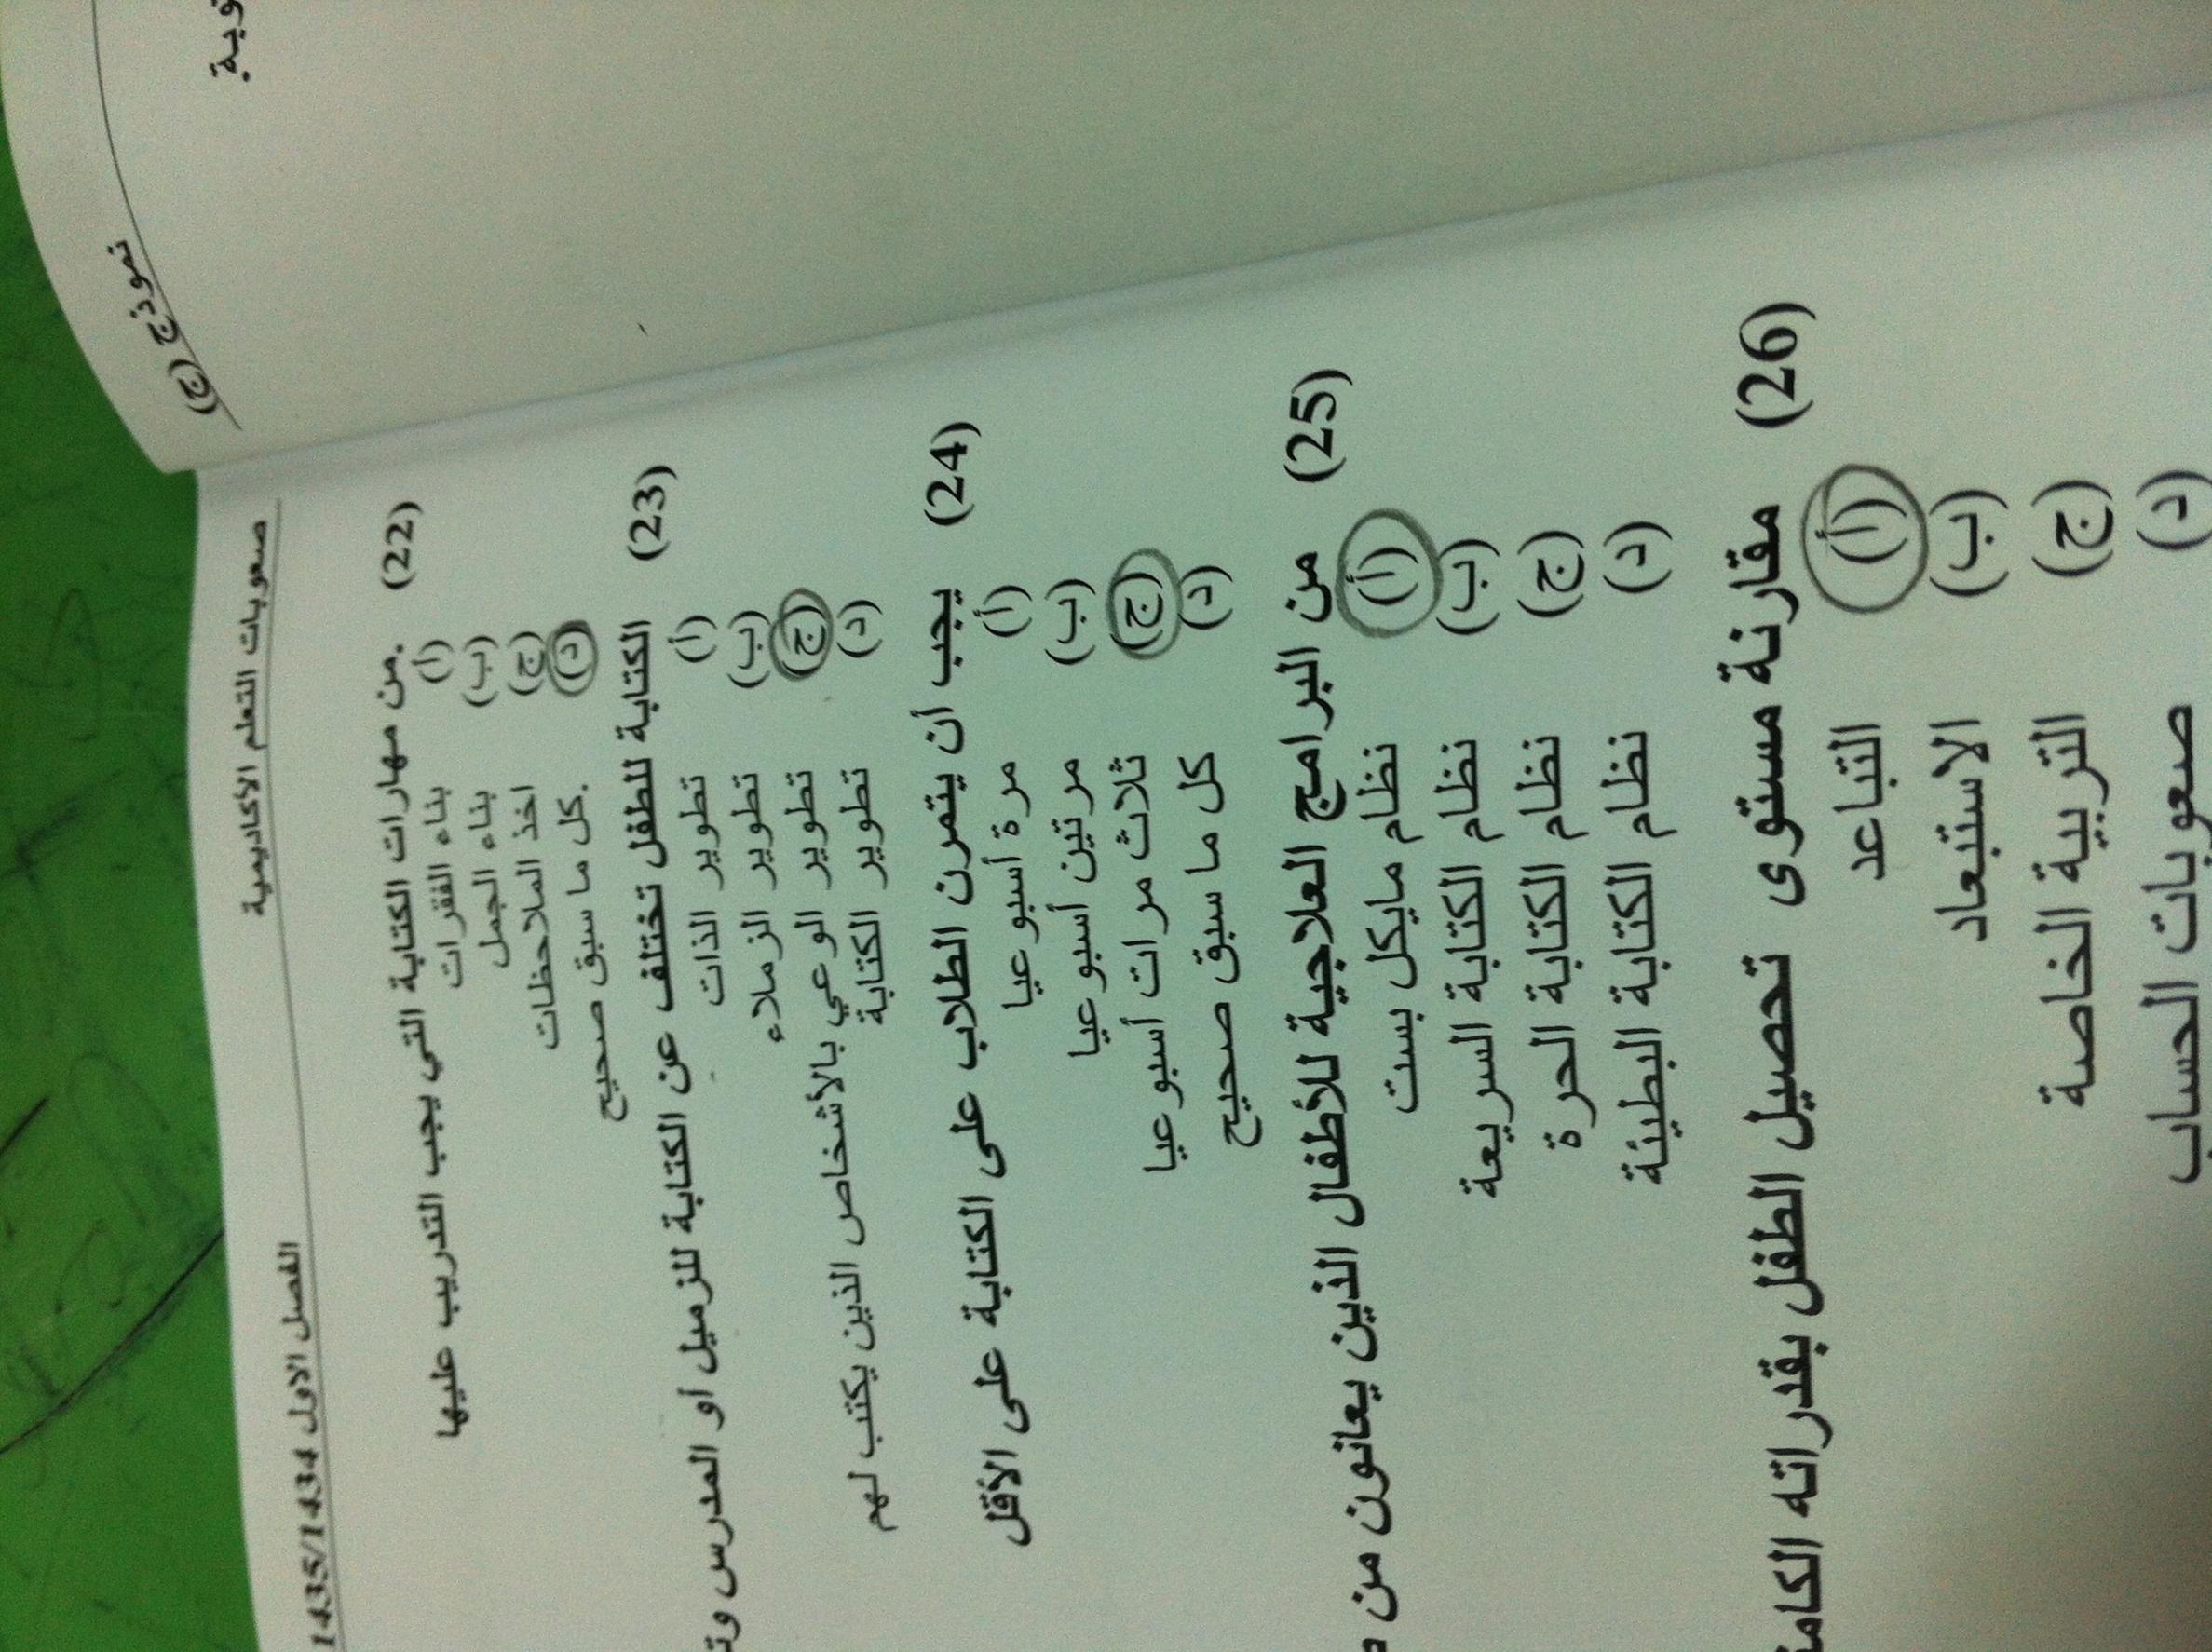 نموذج (ج)
صعوبات التعلم الأكاديمية الفصل الاول 1435/1434
(22) .من مهارات الكتابة التي يجب التدريب عليها
(أ) بناء الفقرات
(ب) بناء الجمل
(ج) اخذ الملاحظات
(د) .كل ما سبق صحيح
(23) الكتابة للطفل تختلف عن الكتابة للزميل أو المدرس
(أ) تطوير الذات
(ب) تطوير الزملاء
(ج) تطوير الوعي بالأشخاص الذين يكتب لهم
(د) تطوير الكتابة
(24) يجب أن يتمرن الطلاب على الكتابة على الأقل
(أ) مرة أسبوعيا
(ب) مرتين أسبوعيا
(ج) ثلاث مرات أسبوعيا
(د) كل ما سبق صحيح
(25) من البرامج العلاجية للأطفال الذين يعانون من
(أ) نظام مايكل بست
(ب) نظام الكتابة السريعة
(ج) نظام الكتابة الحرة
(د) نظام الكتابة البطيئة
(26) مقارنة مستوى تحصيل الطفل بقدراته
(أ) التباعد
(ب) الاستبعاد
(ج) التربية الخاصة
(د) صعوبات الحساب